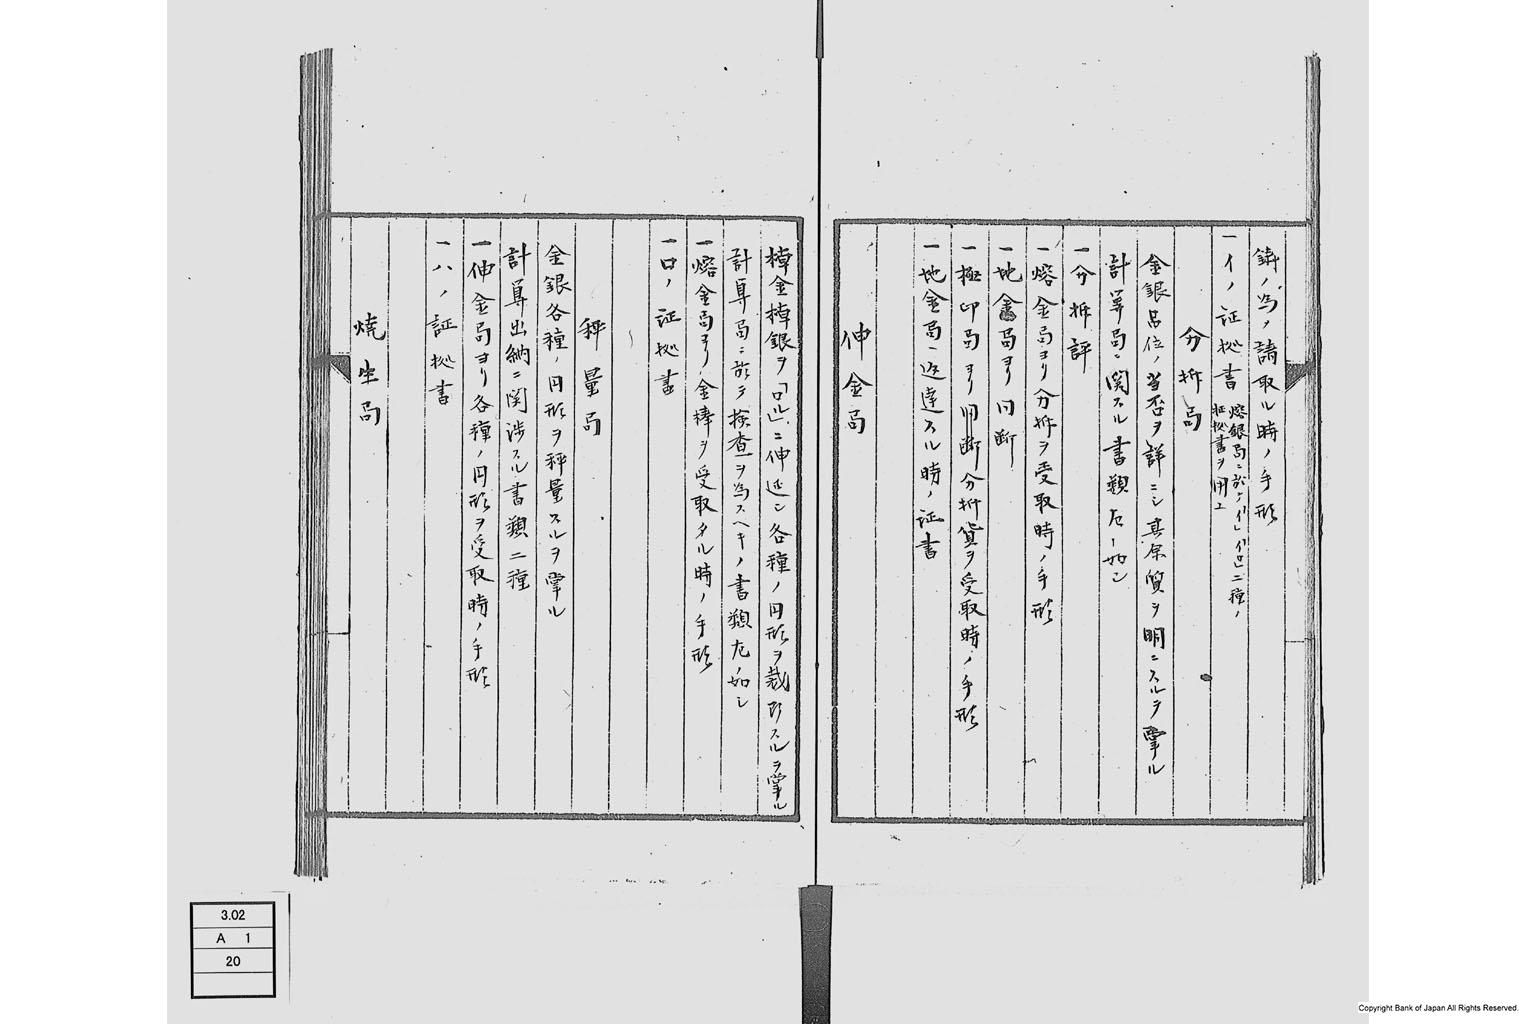 鋳ノ為ノ請取ル時ノ手形
一イノ証拠書
熔銀局ニ於テ「イ」「ロ」二種ノ
証拠書ヲ用ユ
分拆局
金銀品位ノ当否ヲ詳ニシ其原質ヲ明ニスルヲ掌ル
計算局ニ関スル書類左ノ如シ
一分拆評
一熔金局ヨリ分拆ヲ受取時ノ手形
一地金局ヨリ同断
一極印局ヨリ同断分拆貨ヲ受取時ノ手形
一地金局ヘ返達スル時ノ証書
伸金局
棹金棹銀ヲ「ロール」ニ伸延シ各種ノ円形ヲ裁断スルヲ掌ル
計算局ニ於テ検査ヲ為スヘキノ書類左ノ如シ
一熔金局ヨリ金棒ヲ受取タル時ノ手形
一ロノ証拠書
秤量局
金銀各種ノ円形ヲ秤量スルヲ掌ル
計算出納ニ関渉スル書類二種
一伸金局ヨリ各種ノ円形ヲ受取時ノ手形
一ハノ証拠書
焼生局
3.02
A 1
20
Copyright Bank of Japan All Rights Reserved.